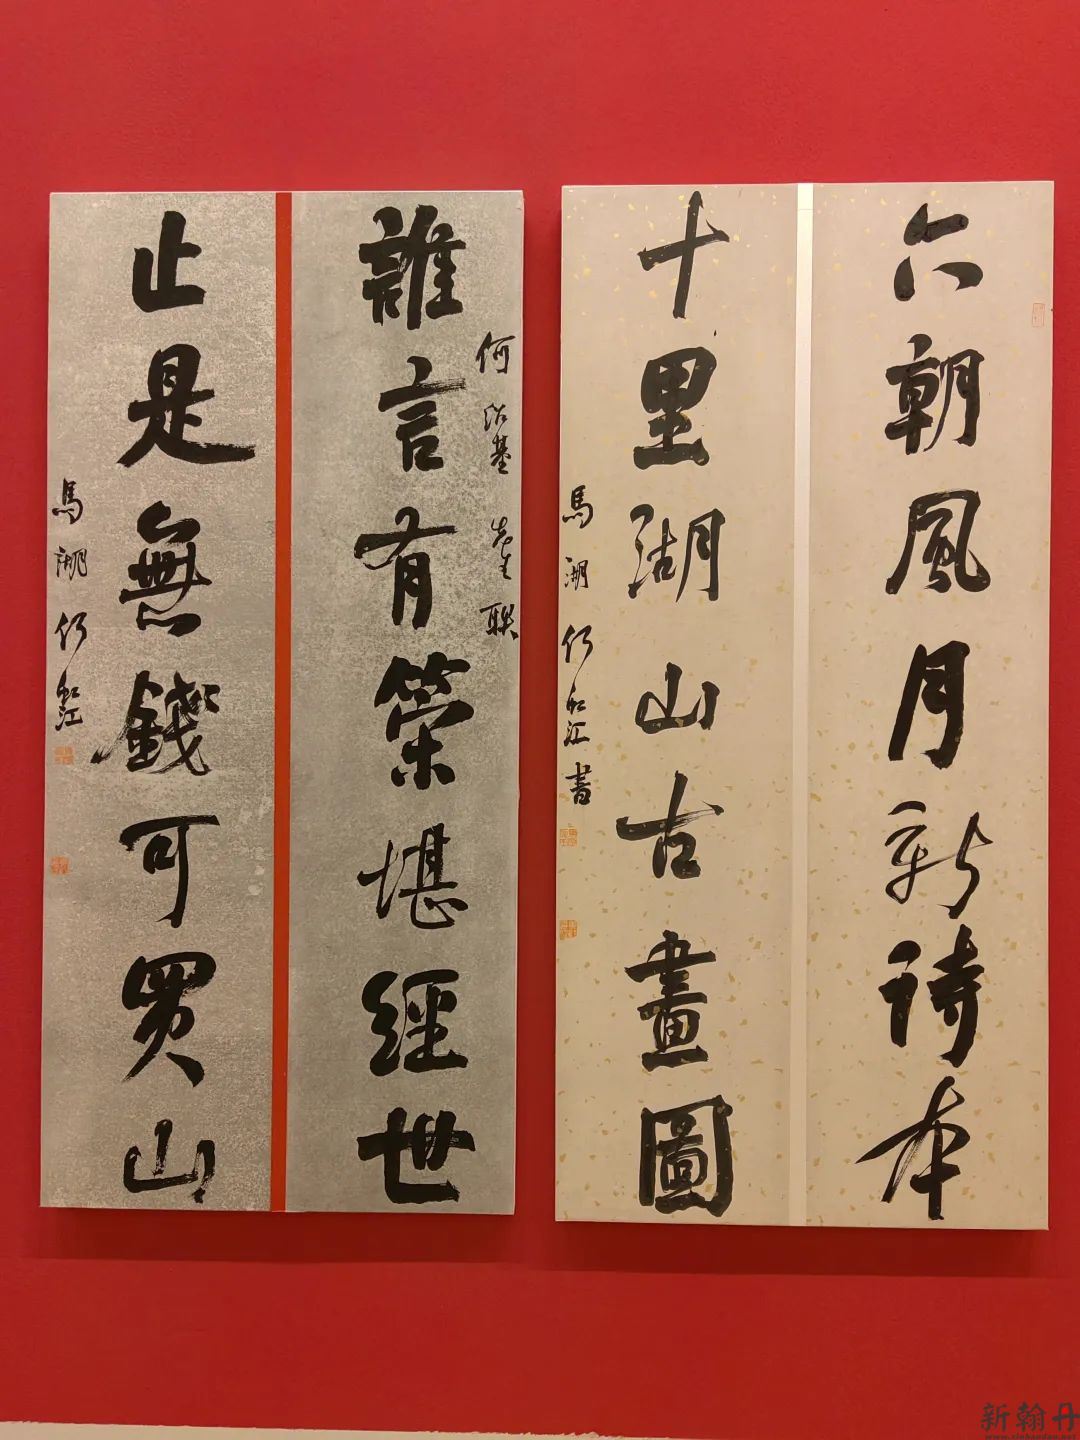 六朝風月新詩本
十里湖山古畫圖
馬湖 江書
誰言有策堪經世
何紹基先生聯
止是無錢可買山
馬湖 江
新翰丹
www.xinhandan.net